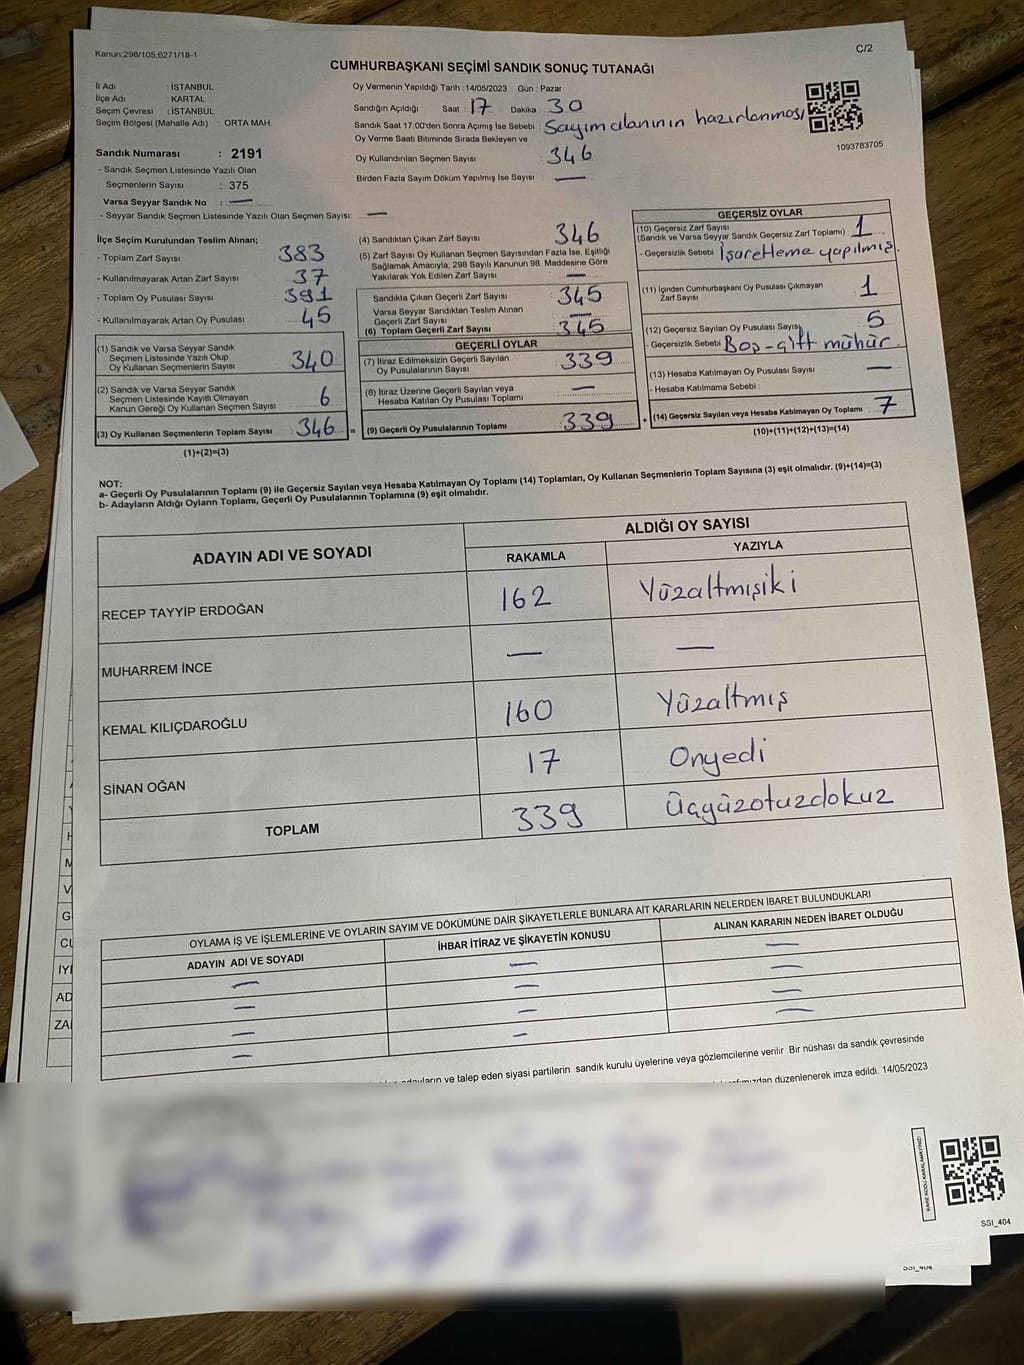 Kanun:298/105,6271/18-1
C/2
CUMHURBAŞKANI SEÇİMİ SANDIK SONUÇ TUTANAĞI
İl Adı : İSTANBUL
İlçe Adı : KARTAL
Seçim Çevresi : İSTANBUL
Seçim Bölgesi (Mahalle Adı) : ORTA MAH.
Sandık Numarası : 2191
- Sandık Seçmen Listesinde Yazılı Olan
Seçmenlerin Sayısı : 375
Varsa Seyyar Sandık No : —
- Seyyar Sandık Seçmen Listesinde Yazılı Olan Seçmen Sayısı: —
Oy Vermenin Yapıldığı Tarih : 14/05/2023 Gün : Pazar
Sandığın Açıldığı Saat : 17 Dakika : 30
Sandık Saat 17.00'den Sonra Açımış İse Sebebi : Sayım alanının hazırlanması
Oy Verme Saati Bitiminde Sırada Bekleyen ve
Oy Kullandırılan Seçmen Sayısı : 346
Birden Fazla Sayım Döküm Yapılmış İse Sayısı : —
1093783705
İlçe Seçim Kurulundan Teslim Alınan;
- Toplam Zarf Sayısı : 383
- Kullanılmayarak Artan Zarf Sayısı : 37
- Toplam Oy Pusulası Sayısı : 391
- Kullanılmayarak Artan Oy Pusulası : 45
(1) Sandık ve Varsa Seyyar Sandık
Seçmen Listesinde Yazılı Olup
Oy Kullanan Seçmenlerin Sayısı : 340
(2) Sandık ve Varsa Seyyar Sandık
Seçmen Listesinde Kayıtlı Olmayan
Kanun Gereği Oy Kullanan Seçmen Sayısı : 6
(3) Oy Kullanan Seçmenlerin Toplam Sayısı : 346 =
(1)+(2)=(3)
(4) Sandıktan Çıkan Zarf Sayısı : 346
(5) Zarf Sayısı Oy Kullanan Seçmen Sayısından Fazla İse, Eşitliği
Sağlamak Amacıyla, 298 Sayılı Kanunun 98. Maddesine Göre
Yakılarak Yok Edilen Zarf Sayısı : —
Sandıkta Çıkan Geçerli Zarf Sayısı : 345
Varsa Seyyar Sandıktan Teslim Alınan
Geçerli Zarf Sayısı : —
(6) Toplam Geçerli Zarf Sayısı : 345
GEÇERLİ OYLAR
(7) İtiraz Edilmeksizin Geçerli Sayılan
Oy Pusulalarının Sayısı : 339
(8) İtiraz Üzerine Geçerli Sayılan veya
Hesaba Katılan Oy Pusulası Toplamı : —
(9) Geçerli Oy Pusulalarının Toplamı : 339 +
GEÇERSİZ OYLAR
(10) Geçersiz Zarf Sayısı
(Sandık ve Varsa Seyyar Sandık Geçersiz Zarf Toplamı) : 1
- Geçersizlik Sebebi : İşaretleme yapılmış.
(11) İçinden Cumhurbaşkanı Oy Pusulası Çıkmayan
Zarf Sayısı : 1
(12) Geçersiz Sayılan Oy Pusulası Sayısı : 5
- Geçersizlik Sebebi : Boş-çift mühür.
(13) Hesaba Katılmayan Oy Pusulası Sayısı : —
- Hesaba Katılmama Sebebi :
(14) Geçersiz Sayılan veya Hesaba Katılmayan Oy Toplamı : 7
(10)+(11)+(12)+(13)=(14)
NOT:
a- Geçerli Oy Pusulalarının Toplamı (9) ile Geçersiz Sayılan veya Hesaba Katılmayan Oy Toplamı (14) Toplamları, Oy Kullanan Seçmenlerin Toplam Sayısına (3) eşit olmalıdır. (9)+(14)=(3)
b- Adayların Aldığı Oyların Toplamı, Geçerli Oy Pusulalarının Toplamına (9) eşit olmalıdır.
ADAYIN ADI VE SOYADI
ALDIĞI OY SAYISI
RAKAMLA YAZIYLA
RECEP TAYYİP ERDOĞAN 162 Yüzaltmışiki
MUHARREM İNCE — —
KEMAL KILIÇDAROĞLU 160 Yüzaltmış
SİNAN OĞAN 17 Onyedi
TOPLAM 339 Üçyüzotuzdokuz
OYLAMA İŞ VE İŞLEMLERİNE VE OYLARIN SAYIM VE DÖKÜMÜNE DAİR ŞİKAYETLERLE BUNLARA AİT KARARLARIN NELERDEN İBARET BULUNDUKLARI
ADAYIN ADI VE SOYADI İHBAR İTİRAZ VE ŞİKAYETİN KONUSU ALINAN KARARIN NEDEN İBARET OLDUĞU
— — —
— — —
— — —
— — —
ve talep eden siyasi partilerin sandık kurulu üyelerine veya gözlemcilerine verilir. Bir nüshası da sandık çevresinde
düzenlenerek imza edildi. 14/05/2023
H
M
V
G
IYI
AD
ZAI
BARKODU KARALAMAYINIZ!
SSI_404
SSI_404